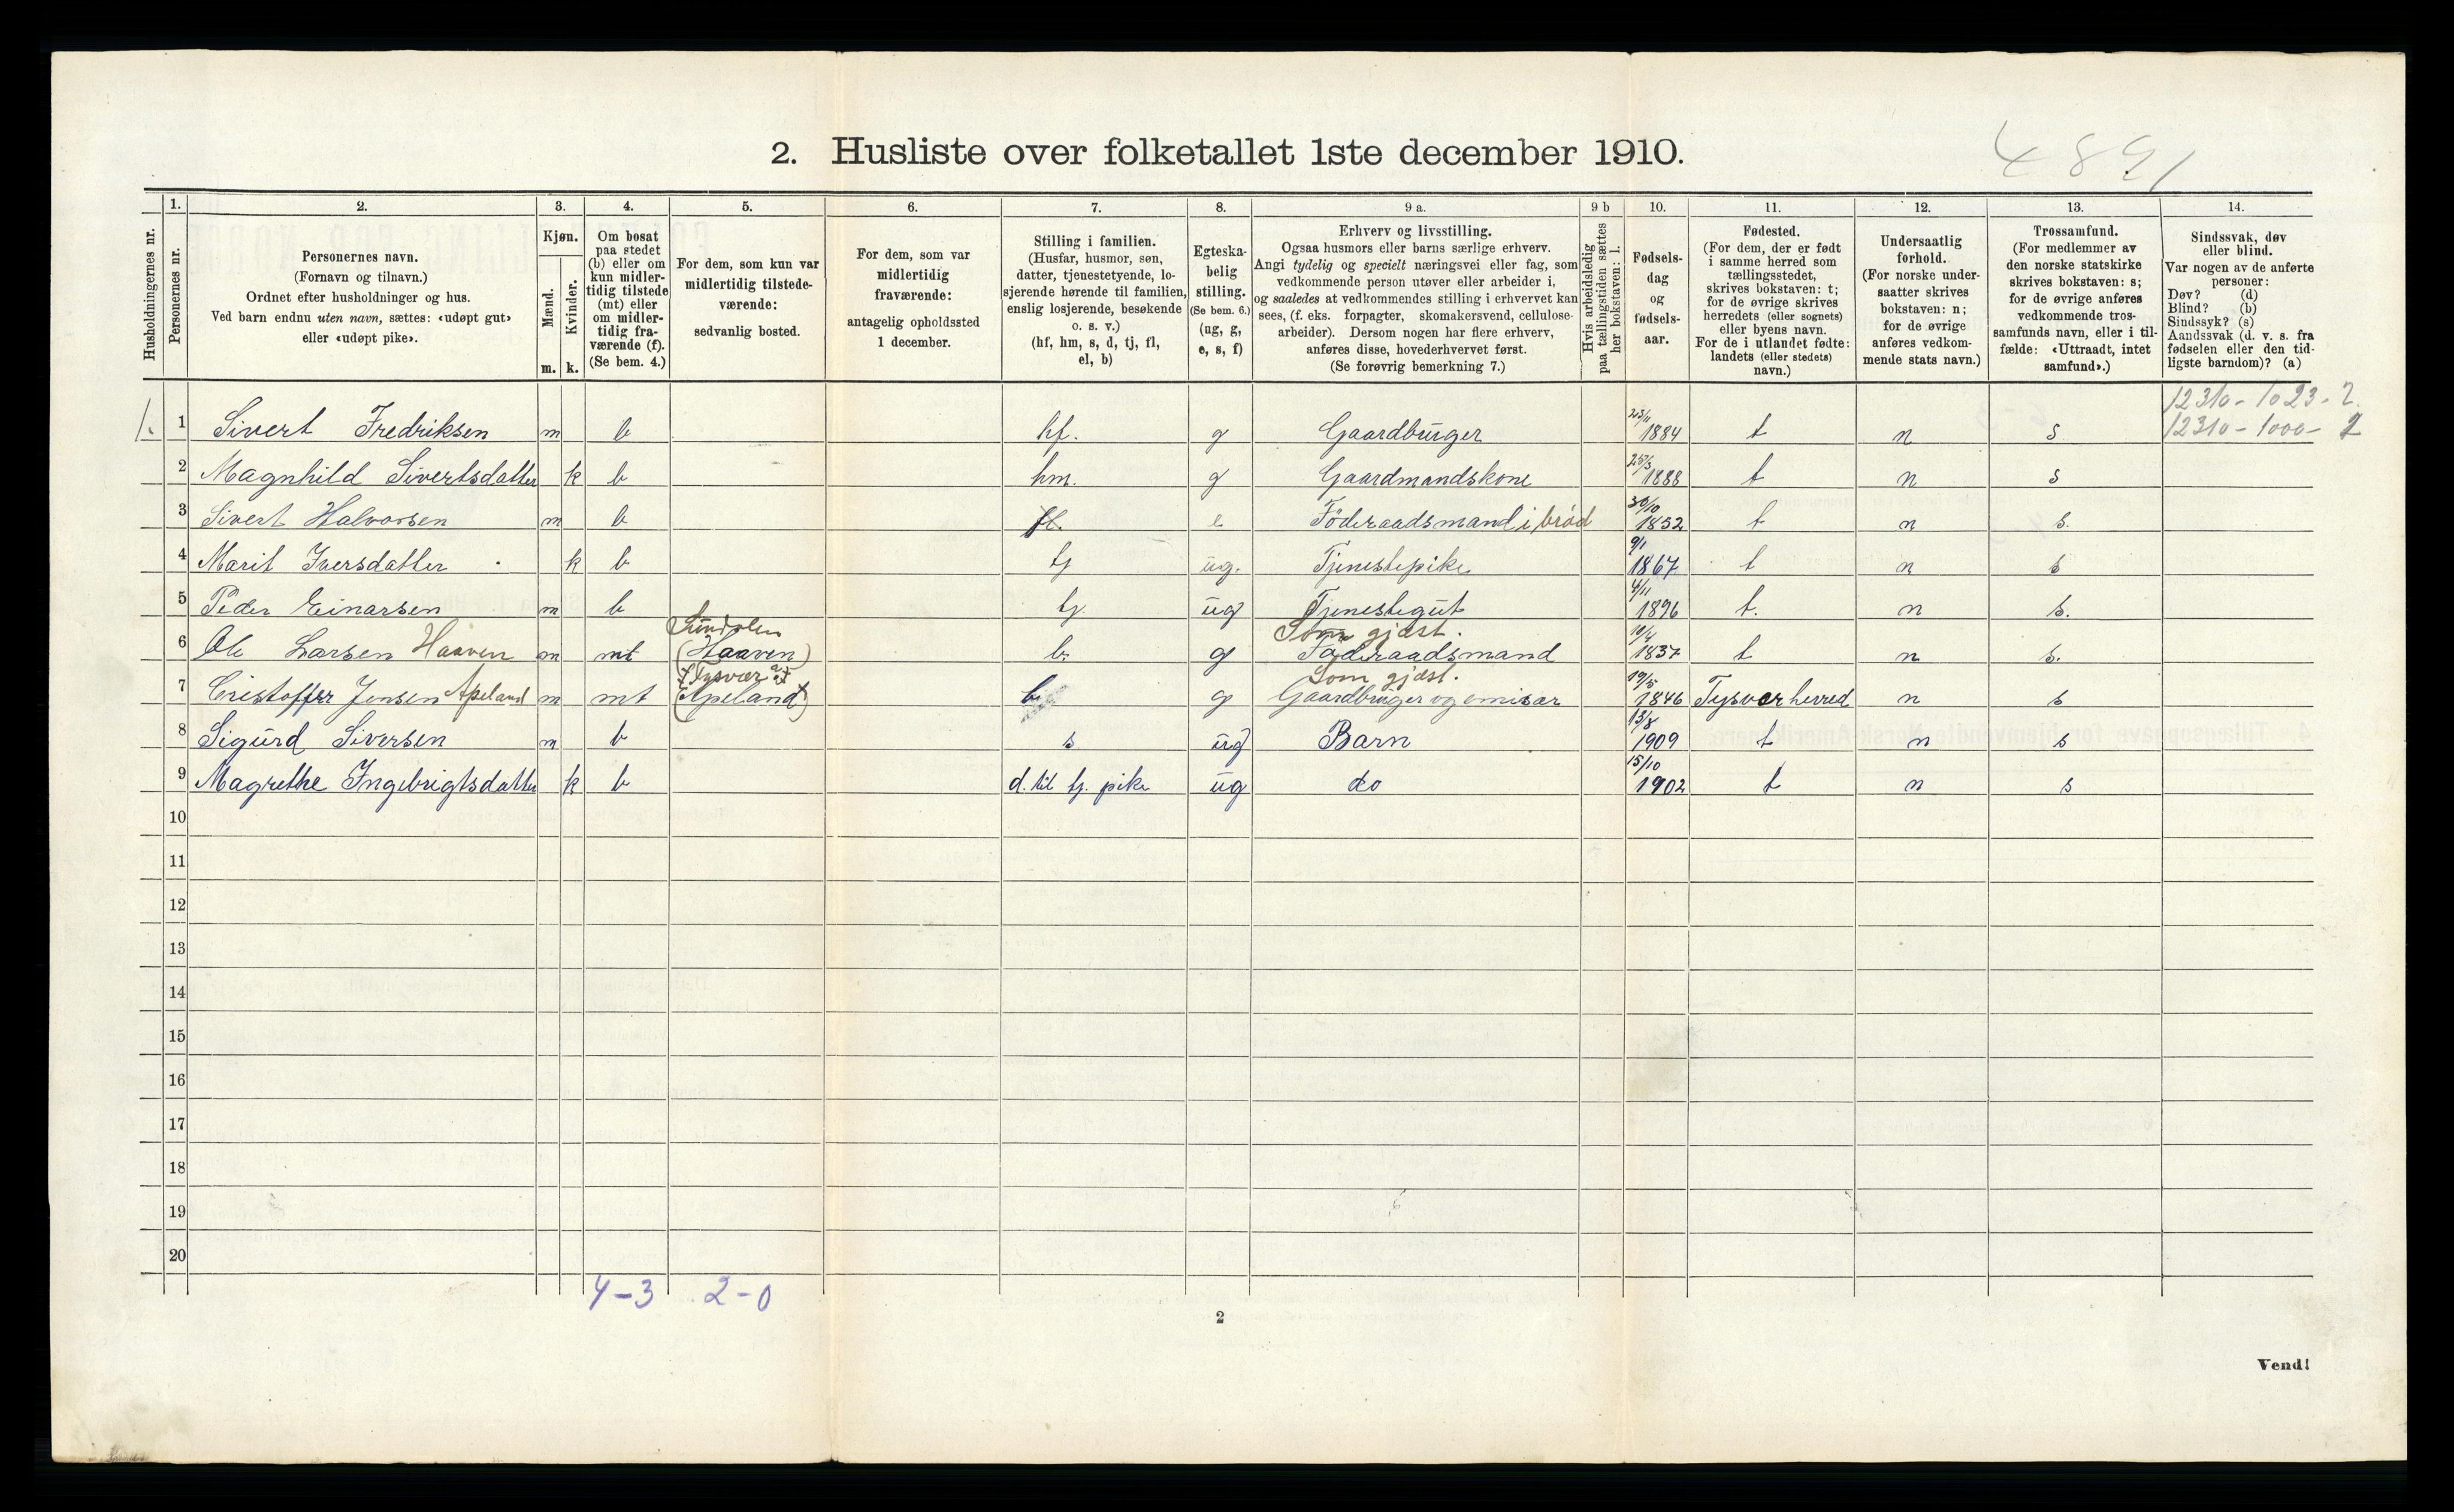 2. Husliste over folketallet 1ste december 1910.
4891
Husholdningernes nr.
1. Personernes nr.
2. Personernes navn.
(Fornavn og tilnavn.)
Ordnet efter husholdninger og hus.
Ved barn endnu uten navn, sættes: «udøpt gut»
eller «udøpt pike».
3. Kjøn.
Mænd. Kvinder.
m. k.
4. Om bosat
paa stedet
(b) eller om
kun midler-
tidig tilstede
(mt) eller
om midler-
tidig fra-
værende (f).
(Se bem. 4.)
5. For dem, som kun var
midlertidig tilstede-
værende:
sedvanlig bosted.
6. For dem, som var
midlertidig
fraværende:
antagelig opholdssted
1 december.
7. Stilling i familien.
(Husfar, husmor, søn,
datter, tjenestetyende, lo-
sjerende hørende til familien,
enslig losjerende, besøkende
o. s. v.)
(hf, hm, s, d, tj, fl,
el, b)
8. Egteska-
belig
stilling.
(Se bem. 6.)
(ug, g,
e, s, f)
9 a. Erhverv og livsstilling.
Ogsaa husmors eller barns særlige erhverv.
Angi tydelig og specielt næringsvei eller fag, som
vedkommende person utøver eller arbeider i,
og saaledes at vedkommendes stilling i erhvervet kan
sees, (f. eks. forpagter, skomakersvend, cellulose-
arbeider). Dersom nogen har flere erhverv,
anføres disse, hovederhvervet først.
(Se forøvrig bemerkning 7.)
9 b Hvis arbeidsledig
paa tællingstiden sættes
her bokstaven: l.
10. Fødsels-
dag
og
fødsels-
aar.
11. Fødested.
(For dem, der er født
i samme herred som
tællingsstedet,
skrives bokstaven: t;
for de øvrige skrives
herredets (eller sognets)
eller byens navn.
For de i utlandet fødte:
landets (eller stedets)
navn.)
12. Undersaatlig
forhold.
(For norske under-
saatter skrives
bokstaven: n;
for de øvrige
anføres vedkom-
mende stats navn.)
13. Trossamfund.
(For medlemmer av
den norske statskirke
skrives bokstaven: s;
for de øvrige anføres
vedkommende tros-
samfunds navn, eller i til-
fælde: «Uttraadt, intet
samfund».)
14. Sindssvak, døv
eller blind.
Var nogen av de anførte
personer:
Døv? (d)
Blind? (b)
Sindssyk? (s)
Aandssvak (d. v. s. fra
fødselen eller den tid-
ligste barndom)? (a)
12310-1023-2.
1. 1 Sivert Fredriksen m b hf. g Gaardbruger 23/11 1884 t n s 12310-1000-2
2 Magnhild Sivertsdatter k b hm. g Gaardmandskone 25/3 1888 t n s
3 Sivert Halvorsen m b fl. e Föderaadsmand i bröd 30/10 1852 t n s.
4 Marit Iversdatter k b tj ug. Tjenestepike 9/1 1867 t n s
5 Peder Einarsen m b tj. ug Tjenestegut 4/11 1896 t. n s.
Sundalen Som gjæst.
6 Ole Larsen Haaven m mt (Haaven) b. g Föderaadsmand 10/4 1837 t n s.
Tysvær Som gjæst.
7 Cristoffer Jensen Apeland m mt (Apeland) b. g Gaardbruger og emisær 19/5 1846 Tysvær herred n s
8 Sigurd Siversen m b s ug Barn 13/8 1909 t n s
9 Magrethe Ingebrigtsdatter k b d. til tj. pike ug do 15/10 1902 t n s
10
11
12
13
14
15
16
17
18
19
20
4-3 2-0
2
Vend!